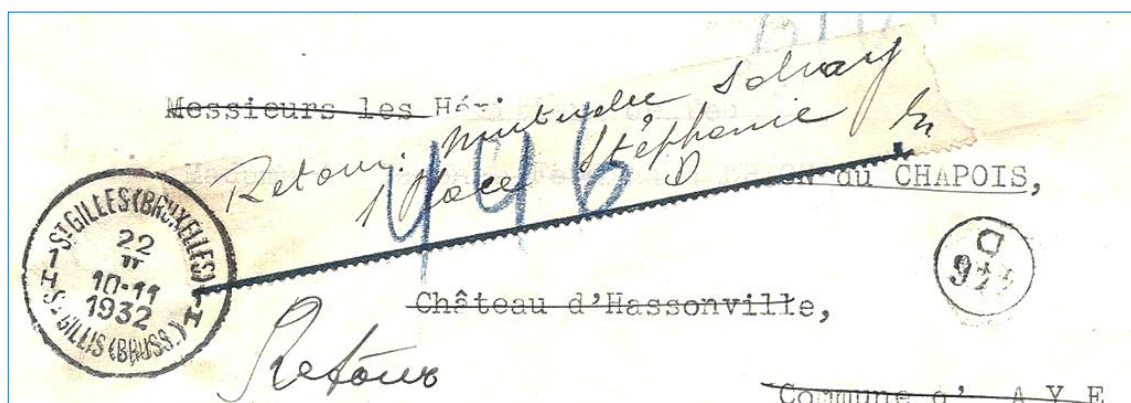 Messieurs les Héri
Retour: Mutuelle Solvay
1 Place Stéphanie
D
446
du CHAPOIS,
ST GILLES (BRUXELLES)
22
II
10-11
1932
ST GILLIS (BRUSS.)
1 H
1 H
D
Château d'Hassonville,
Retour
Commune d' A Y E